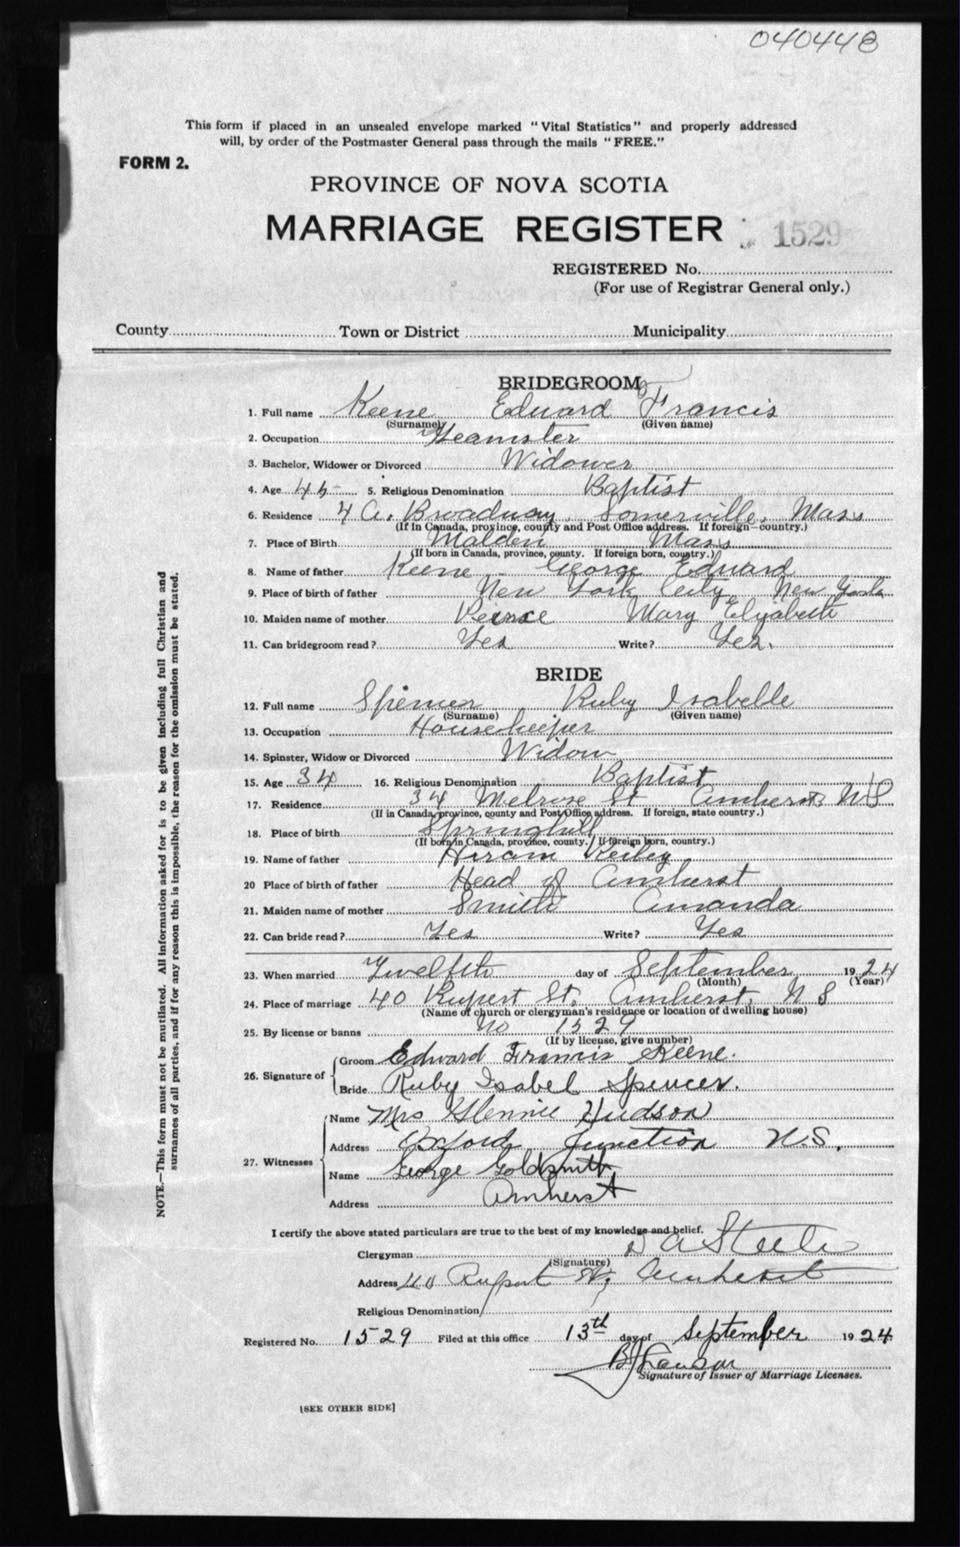 040448
This form if placed in an unsealed envelope marked "Vital Statistics" and properly addressed
will, by order of the Postmaster General pass through the mails "FREE."
FORM 2.
PROVINCE OF NOVA SCOTIA
MARRIAGE REGISTER 1529
REGISTERED No.
(For use of Registrar General only.)
County Town or District Municipality
BRIDEGROOM
1. Full name Keene Eduard Francis
(Surname) (Given name)
2. Occupation Teamster
3. Bachelor, Widower or Divorced Widower
4. Age 45 5. Religious Denomination Baptist
6. Residence 4 A. Broadway, Somerville, Mass
(If in Canada, province, county and Post Office address. If foreign—country.)
7. Place of Birth Malden Mass
(If born in Canada, province, county. If foreign born, country.)
8. Name of father Keene George Eduard
9. Place of birth of father New York City, New York
10. Maiden name of mother Mary Elizabeth
11. Can bridegroom read? Yes Write? Yes.
BRIDE
12. Full name Spencer Ruby Isabelle
(Surname) (Given name)
13. Occupation Housekeeper
14. Spinster, Widow or Divorced Widow
15. Age 34 16. Religious Denomination Baptist
17. Residence 34 Melrose St Amherst NS
(If in Canada, province, county and Post Office address. If foreign, state country.)
18. Place of birth Springhill
(If born in Canada, province, county. If foreign born, country.)
19. Name of father Hiram
20 Place of birth of father Head of Amherst
21. Maiden name of mother Smith Amanda
22. Can bride read? Yes Write? Yes
23. When married Twelfth day of September 1924
(Month) (Year)
24. Place of marriage 40 Rupert St. Amherst, N S
(Name of church or clergyman's residence or location of dwelling house)
25. By license or banns No 1529
(If by license, give number)
26. Signature of Groom Edward Francis Keene.
Bride Ruby Isabel Spencer.
27. Witnesses Name Mrs Glennie Hudson
Address Oxford Junction N.S.
Name George Goldsmith
Address Amherst
I certify the above stated particulars are true to the best of my knowledge and belief.
Clergyman D A Steele
(Signature)
Address 40 Rupert St, Amherst
Religious Denomination
Registered No. 1529 Filed at this office 13th day of September 1924
Signature of Issuer of Marriage Licenses.
[SEE OTHER SIDE]
NOTE.—This form must not be mutilated. All information asked for is to be given including full Christian and
surnames of all parties, and if for any reason this is impossible, the reason for the omission must be stated.